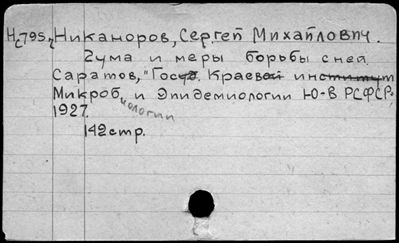 Нс795, Никаноров, Сергей Михайлович.
Чума и меры борьбы с ней.
Саратов, "Госуд. Краевой институт
Микроб. и Эпидемиологии Ю-В РСФСР,
иологии
1927.
142 стр.